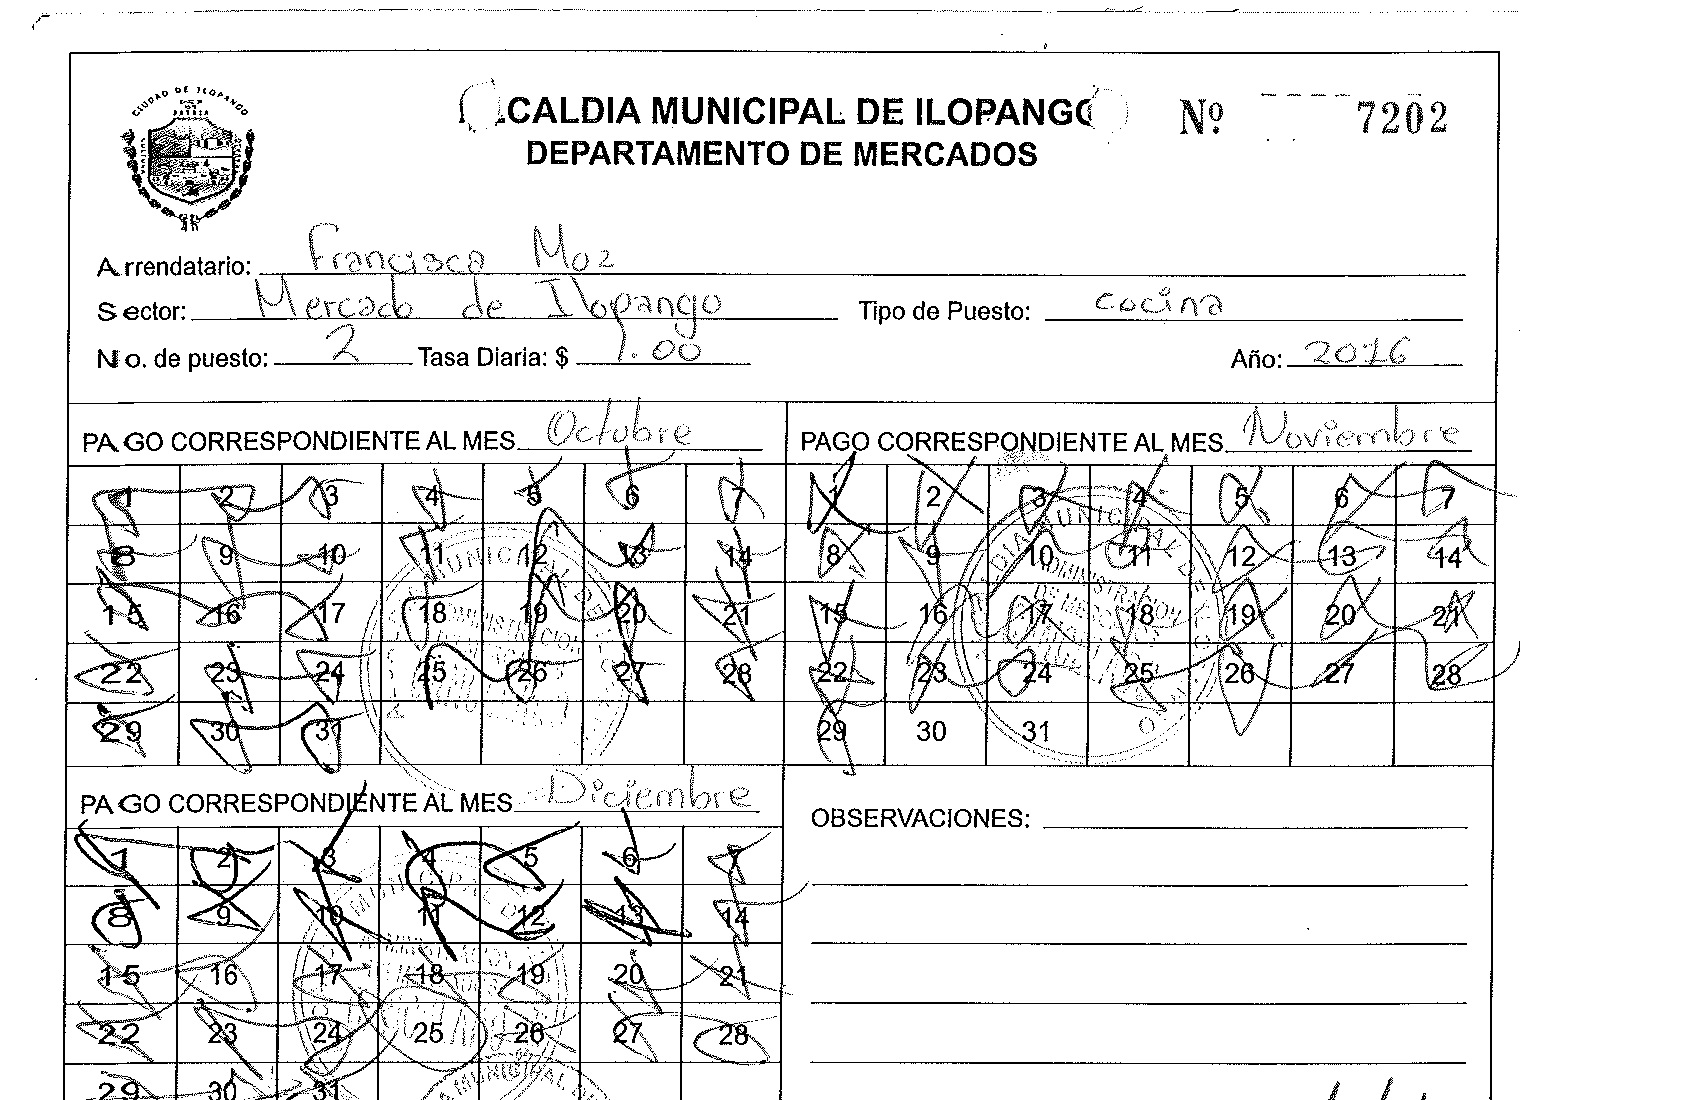 CIUDAD DE ILOPANGO
ALCALDIA MUNICIPAL DE ILOPANGO
Nº 7202
DEPARTAMENTO DE MERCADOS
Arrendatario: Francisca Moz
Sector: Mercado de Ilopango Tipo de Puesto: cocina
No. de puesto: 2 Tasa Diaria: $ 1.00 Año: 2016
PAGO CORRESPONDIENTE AL MES Octubre
1 2 3 4 5 6 7
8 9 10 11 12 13 14
15 16 17 18 19 20 21
22 23 24 25 26 27 28
29 30 31
PAGO CORRESPONDIENTE AL MES Noviembre
1 2 3 4 5 6 7
8 9 10 11 12 13 14
15 16 17 18 19 20 21
22 23 24 25 26 27 28
29 30 31
PAGO CORRESPONDIENTE AL MES Diciembre
1 2 3 4 5 6 7
8 9 10 11 12 13 14
15 16 17 18 19 20 21
22 23 24 25 26 27 28
29 30 31
OBSERVACIONES: